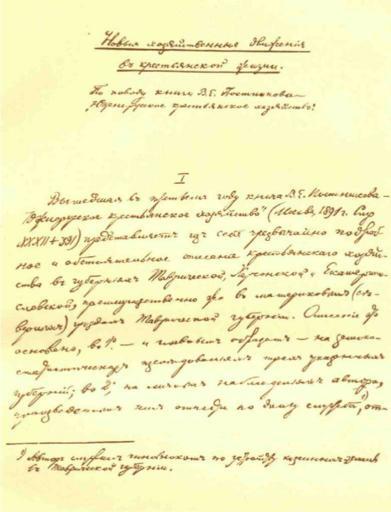 Новыя хозяйственныя движенiя
въ крестьянской жизни.
По поводу книги В.Е. Постникова –
"Южно-русское крестьянское хозяйство".
I
Вышедшая въ прошломъ году книга В.Е. Постникова:
"Южнорусское крестьянское хозяйство" (Москва, 1891 г. Стр.
XXXII+391) представляетъ изъ себя чрезвычайно подроб-
ное и обстоятельное описанiе крестьянскаго хозяй-
ства въ губернiяхъ Таврической, Херсонской и Екатерино-
славской, преимущественно же въ материковыхъ (сѣ-
верныхъ) уѣздахъ Таврической губернiи. Описанiе это
основано, во 1х – и главнымъ образомъ – на земско-
статистическихъ изслѣдованiяхъ трехъ указанныхъ
губернiй; во 2х, на личныхъ наблюденiяхъ автора,
произведенныхъ имъ отчасти по долгу службы 1),
1) Авторъ служилъ чиновникомъ по устройству казенныхъ земель
въ Таврической губернiи.